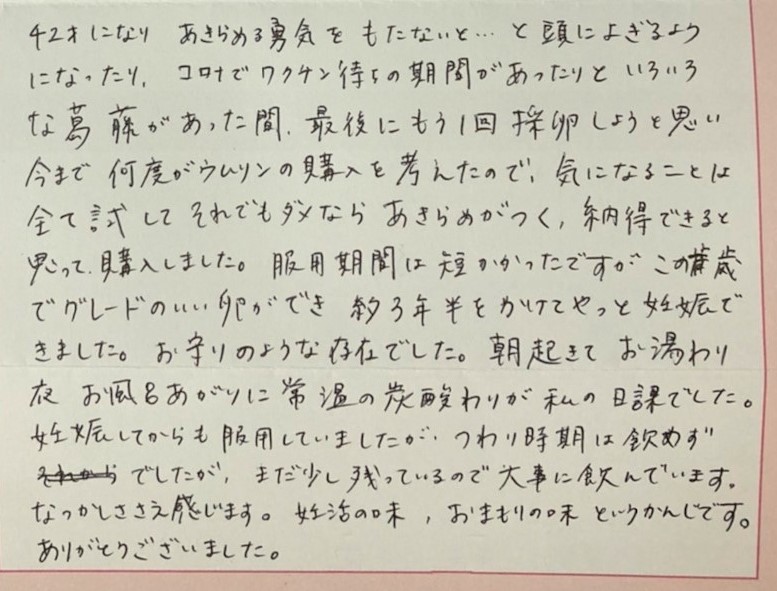 42才になり あきらめる勇気をもたないと… と頭によぎるよう
になったり、コロナでワクチン待ちの期間があったりと いろいろ
な葛藤があった間、最後にもう1回採卵しようと思い
今まで 何度がウムリンの購入を考えたので、気になることは
全て試して それでもダメなら あきらめがつく、納得できると
思って、購入しました。服用期間は短かかったですが この歳
でグレードのいい卵ができ 約3年半をかけてやっと妊娠で
きました。お守りのような存在でした。朝起きて お湯わり
夜 お風呂あがりに常温の炭酸わりが 私の日課でした。
妊娠してからも服用していましたが、つわり時期は飲めず
でしたが、まだ少し残っているので大事に飲んでいます。
なつかしささえ感じます。妊活の味、おまもりの味 というかんじです。
ありがとうございました。